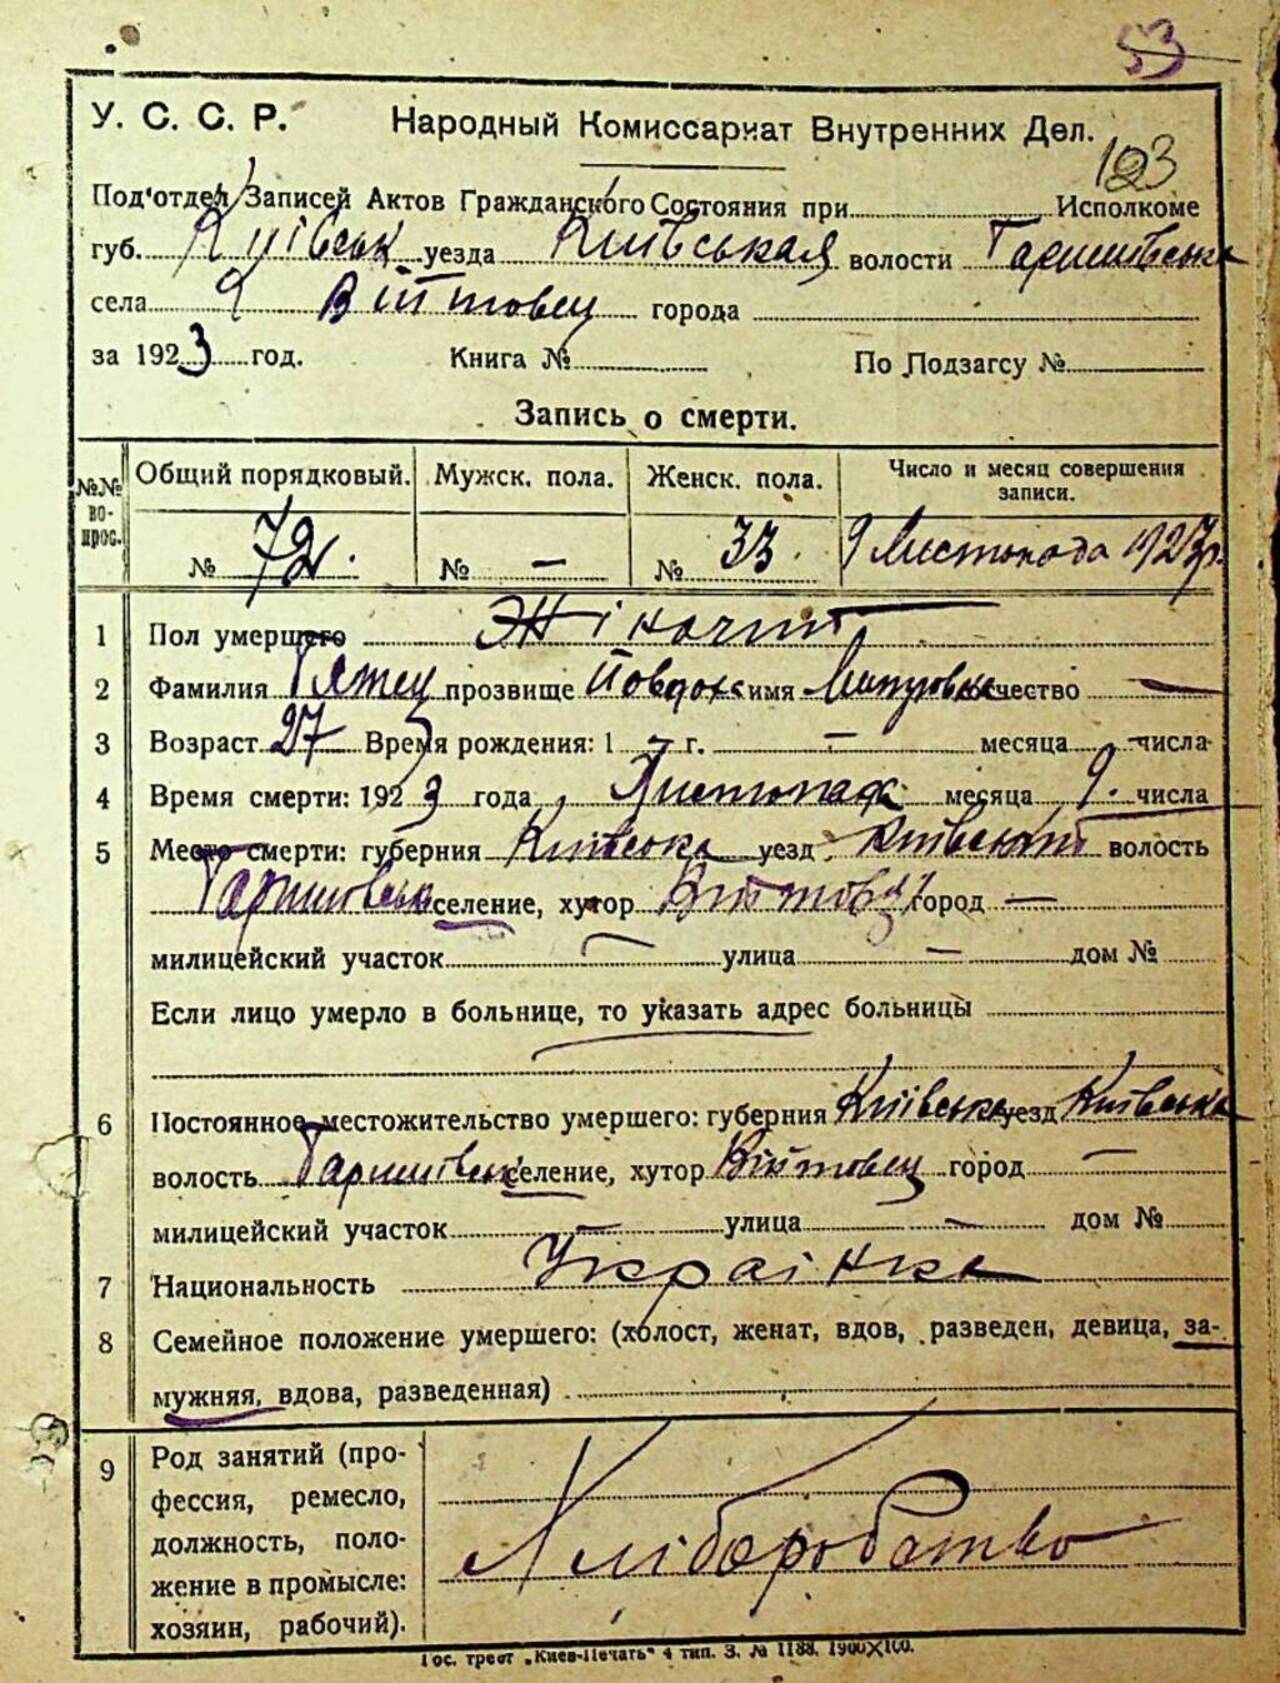 53
У. С. С. Р. Народный Комиссариат Внутренних Дел.
123
Под'отдел Записей Актов Гражданского Состояния при Исполкоме
губ. Київськ уезда Київськая волости
села Війтовец города
за 1923 год. Книга № По Подзагсу №
Запись о смерти.
№№ во- прос. Общий порядковый. Мужск. пола. Женск. пола. Число и месяц совершения записи.
№ 72. № — № 33. 9 Листопада 1923р.
1 Пол умершего Жіночий
2 Фамилия прозвище имя отчество —
3 Возраст 27 Время рождения: 1 — г. — месяца — числа
4 Время смерти: 1923 года Листопада месяца 9. числа
5 Место смерти: губерния Київська уезд Київський волость
селение, хутор Війтовці город —
милицейский участок — улица — дом №
Если лицо умерло в больнице, то указать адрес больницы
6 Постоянное местожительство умершего: губерния Київська уезд Київська
волость селение, хутор Війтовец город —
милицейский участок — улица — дом №
7 Национальность Українка
8 Семейное положение умершего: (холост, женат, вдов, разведен, девица, за-
мужняя, вдова, разведенная)
9 Род занятий (про-
фессия, ремесло,
должность, поло-
жение в промысле:
хозяин, рабочий).
Хліборобство
Гос. трест „Киев-Печать“ 4 тип. З. № 1188. 1900×100.